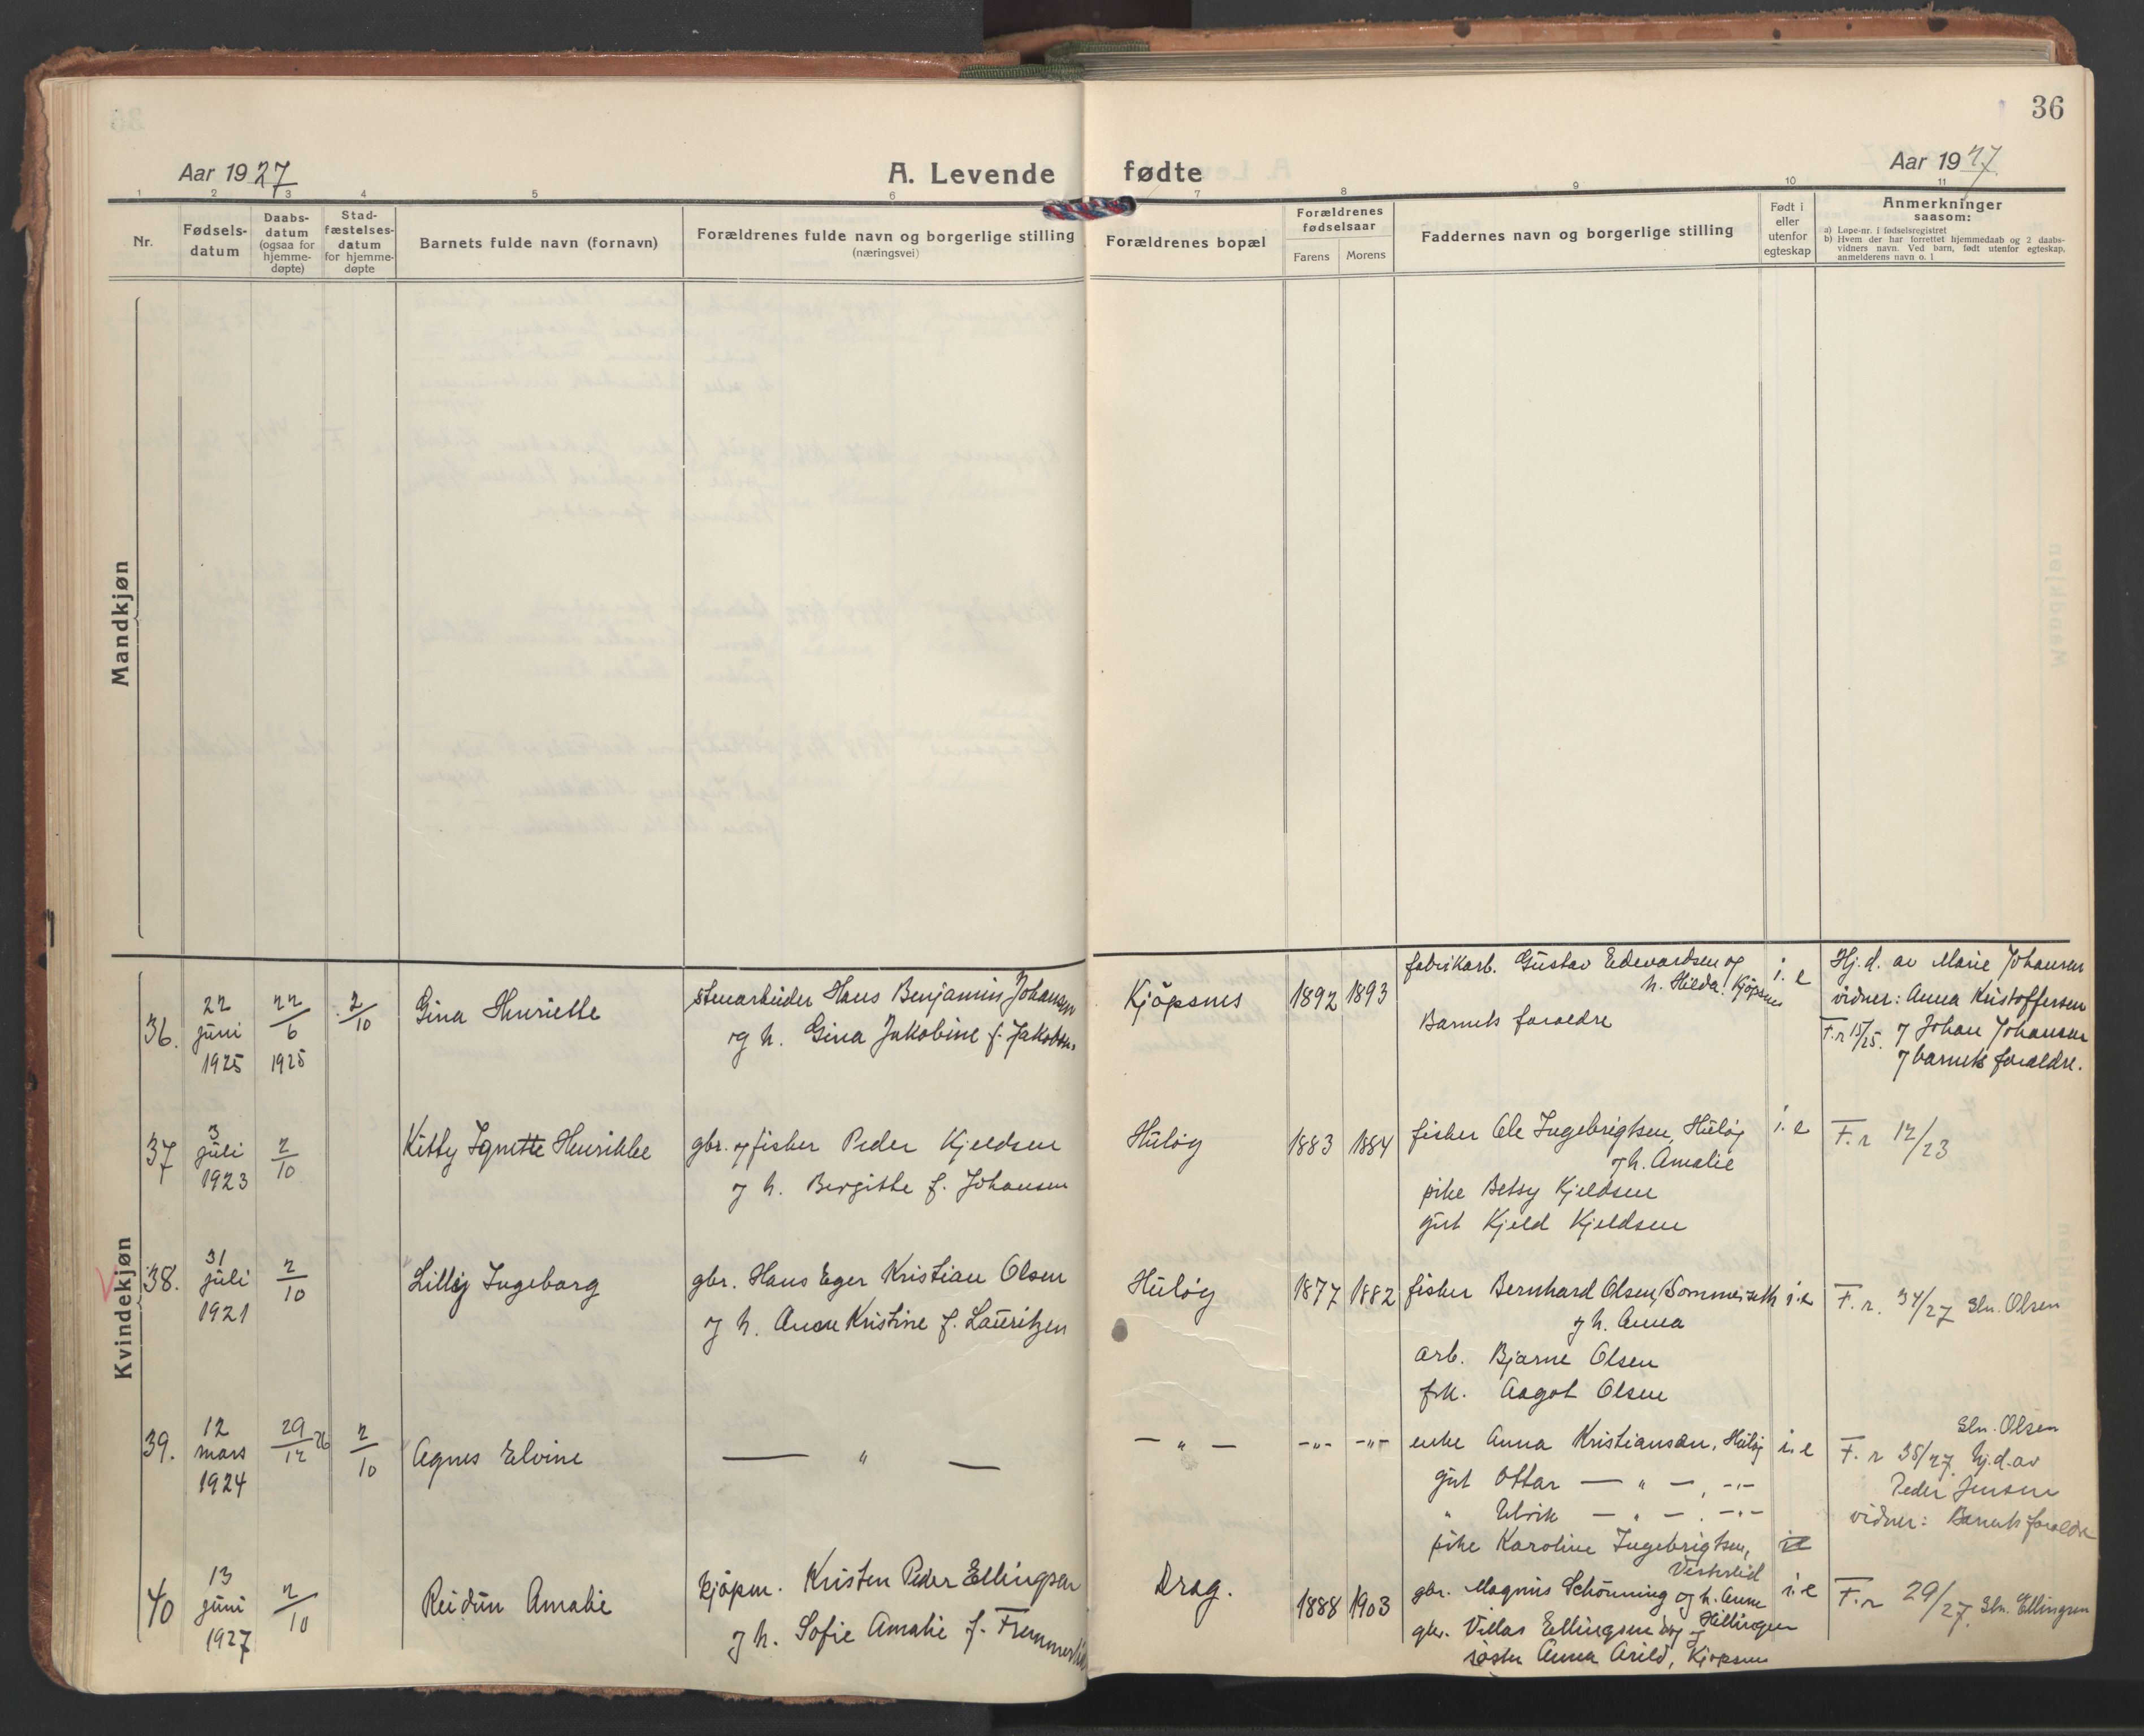 36
Aar 1927
A. Levende fødte
Aar 1927
1 2 3 4 5 7 8 9 10 11
Nr.
Fødsels-
datum
Daabs-
datum
(ogsaa for
hjemme-
døpte)
Stad-
fæstelses-
datum
for hjemme-
døpte
Barnets fulde navn (fornavn)
Forældrenes fulde navn og borgerlige stilling
(næringsvei)
Forældrenes bopæl
Forældrenes
fødselsaar
Farens Morens
Faddernes navn og borgerlige stilling
Født i
eller
utenfor
egteskap
Anmerkninger
saasom:
a) Løpe-nr. i fødselsregistret
b) Hvem der har forrettet hjemmedaab og 2 daabs-
vidners navn. Ved barn, født utenfor egteskap,
anmelderens navn o. l
Mandkjøn
Kvindekjøn
36.
22
juni
1925
22/6
1925
2/10
Gina Henriette
stenarbeider Hans Benjamin Johansen
og h. Gina Jakobine f. Jakobsen
Kjöpsnes
1892 1893
fabrikarb. Gustav Edevardsen og
h. Hilda. Kjöpsnes
Barnets foreldre
i. e
Hj.d. av Marie Johansen
vidner: Anna Kristoffersen
F.r 15/25. og Johan Johansen
og barnets foreldre.
37
3
juli
1923
2/10
Kitty Henrikke
gbr. og fisker Peder Kjeldsen
og h. Bergitte f. Johansen
Huløy
1883 1884
fisker Ole Ingebrigtsen, Huløy
og h. Amalie
pike Betsy Kjeldsen
gut Kjeld Kjeldsen
i. e
F. r 12/23
38.
31
juli
1921
2/10
Lilly Ingeborg
gbr. Hans Eger Kristian Olsen
og h. Anne Kristine f. Lauritzen
Huløy
1877 1882
fisker Bernhard Olsen, Sommerseth
og h. Anna
arb. Bjarne Olsen
frk. Aagot Olsen
i. e
F. r. 34/27 Sln. Olsen
39.
12
mars
1924
29/12 26
2/10
Agnes Elvine
— " —
— " —
-"- -"-
enke Anna Kristiansen, Huløy
gut Ottar — " —, -"-
" Ulrik — " —. -"-
pike Karoline Ingebrigtsen,
Vesterlid
i. e
Sln. Olsen
F. r 35/27. hj.d. av
Peder Jensen
vidner: Barnets foreldre
40
13
juni
1927
2/10
Reidun Amalie
kjöpm. Kristen Peder Ellingsen
og h. Sofie Amalie f.
Drag.
1888 1903
gbr. Magnus Schönning og h. Anne
gbr. Villas Ellingsen
søster Anna Arild, Kjøpsnes
i. e
F. r 29/27. Sln. Ellingsen